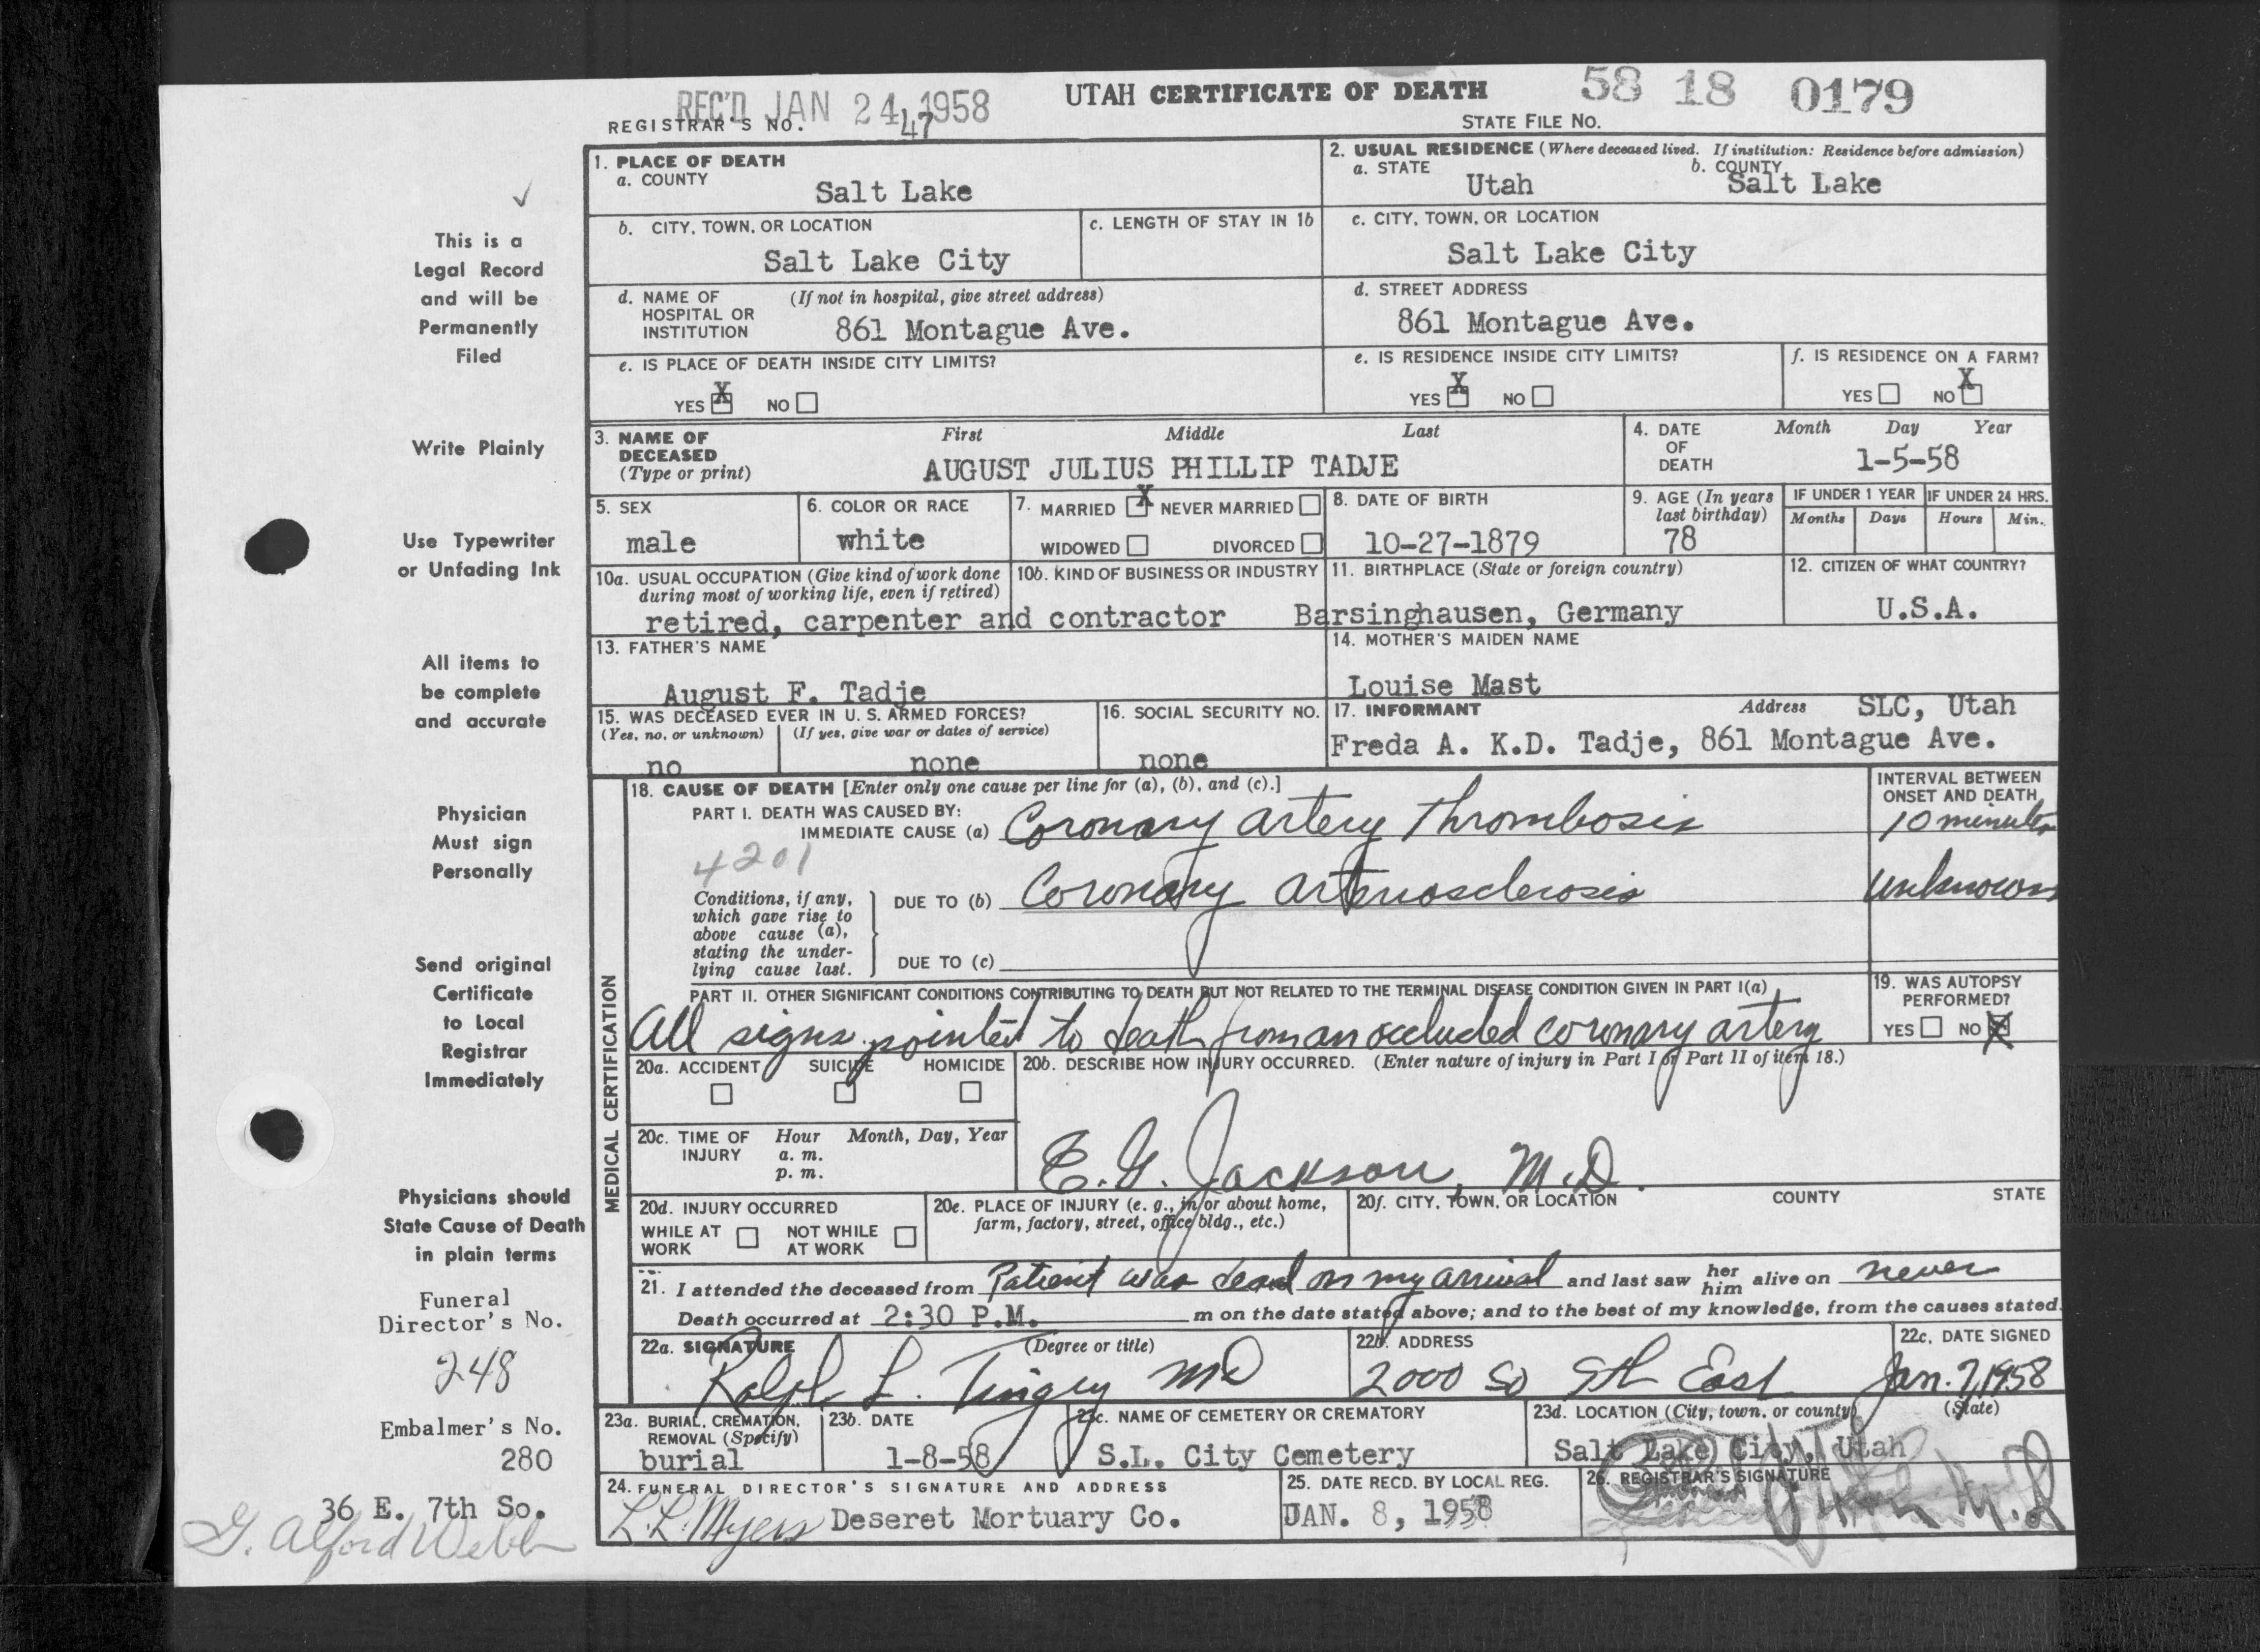 REC'D JAN 24 1958
UTAH CERTIFICATE OF DEATH
58 18 0179
REGISTRAR'S NO. 47
STATE FILE NO.
This is a
Legal Record
and will be
Permanently
Filed
Write Plainly
Use Typewriter
or Unfading Ink
All items to
be complete
and accurate
Physician
Must sign
Personally
Send original
Certificate
to Local
Registrar
Immediately
Physicians should
State Cause of Death
in plain terms
Funeral
Director's No.
248
Embalmer's No.
280
36 E. 7th So.
G. Alford Webb
1. PLACE OF DEATH
a. COUNTY
Salt Lake
2. USUAL RESIDENCE (Where deceased lived. If institution: Residence before admission)
a. STATE Utah b. COUNTY Salt Lake
b. CITY, TOWN, OR LOCATION
Salt Lake City
c. LENGTH OF STAY IN 1b
c. CITY, TOWN, OR LOCATION
Salt Lake City
d. NAME OF (If not in hospital, give street address)
HOSPITAL OR
INSTITUTION 861 Montague Ave.
d. STREET ADDRESS
861 Montague Ave.
e. IS PLACE OF DEATH INSIDE CITY LIMITS?
YES X NO
e. IS RESIDENCE INSIDE CITY LIMITS?
YES X NO
f. IS RESIDENCE ON A FARM?
YES NO X
3. NAME OF DECEASED (Type or print)
First Middle Last
AUGUST JULIUS PHILLIP TADJE
4. DATE OF DEATH
Month Day Year
1-5-58
5. SEX
male
6. COLOR OR RACE
white
7. MARRIED X NEVER MARRIED
WIDOWED DIVORCED
8. DATE OF BIRTH
10-27-1879
9. AGE (In years last birthday)
78
IF UNDER 1 YEAR IF UNDER 24 HRS.
Months Days Hours Min.
10a. USUAL OCCUPATION (Give kind of work done
during most of working life, even if retired)
10b. KIND OF BUSINESS OR INDUSTRY
retired, carpenter and contractor
11. BIRTHPLACE (State or foreign country)
Barsinghausen, Germany
12. CITIZEN OF WHAT COUNTRY?
U.S.A.
13. FATHER'S NAME
August F. Tadje
14. MOTHER'S MAIDEN NAME
Louise Mast
15. WAS DECEASED EVER IN U. S. ARMED FORCES?
(Yes, no, or unknown) (If yes, give war or dates of service)
no none
16. SOCIAL SECURITY NO.
none
17. INFORMANT Address SLC, Utah
Freda A. K.D. Tadje, 861 Montague Ave.
MEDICAL CERTIFICATION
18. CAUSE OF DEATH [Enter only one cause per line for (a), (b), and (c).]
INTERVAL BETWEEN
ONSET AND DEATH
PART I. DEATH WAS CAUSED BY:
IMMEDIATE CAUSE (a) Coronary artery thrombosis 10 minutes
4201
Conditions, if any,
which gave rise to
above cause (a),
stating the under-
lying cause last.
DUE TO (b) Coronary arteriosclerosis unknown
DUE TO (c)
PART II. OTHER SIGNIFICANT CONDITIONS CONTRIBUTING TO DEATH BUT NOT RELATED TO THE TERMINAL DISEASE CONDITION GIVEN IN PART I(a)
All signs pointed to death from an occluded coronary artery
19. WAS AUTOPSY
PERFORMED?
YES NO X
20a. ACCIDENT SUICIDE HOMICIDE
20b. DESCRIBE HOW INJURY OCCURRED. (Enter nature of injury in Part I or Part II of item 18.)
20c. TIME OF INJURY Hour Month, Day, Year
a. m.
p. m.
E. G. Jackson, M.D.
20d. INJURY OCCURRED
WHILE AT WORK NOT WHILE AT WORK
20e. PLACE OF INJURY (e. g., in or about home,
farm, factory, street, office bldg., etc.)
20f. CITY, TOWN, OR LOCATION COUNTY STATE
21. I attended the deceased from Patient was dead on my arrival and last saw her him alive on never
Death occurred at 2:30 P.M. m on the date stated above; and to the best of my knowledge, from the causes stated.
22a. SIGNATURE (Degree or title)
Ralph L. Tingey MD
22b. ADDRESS
2000 So 9th East
22c. DATE SIGNED
Jan. 7, 1958
23a. BURIAL, CREMATION,
REMOVAL (Specify)
burial
23b. DATE
1-8-58
23c. NAME OF CEMETERY OR CREMATORY
S.L. City Cemetery
23d. LOCATION (City, town, or county) (State)
Salt Lake City, Utah
24. FUNERAL DIRECTOR'S SIGNATURE AND ADDRESS
L.L. Myers Deseret Mortuary Co.
25. DATE RECD. BY LOCAL REG.
JAN. 8, 1958
26. REGISTRAR'S SIGNATURE